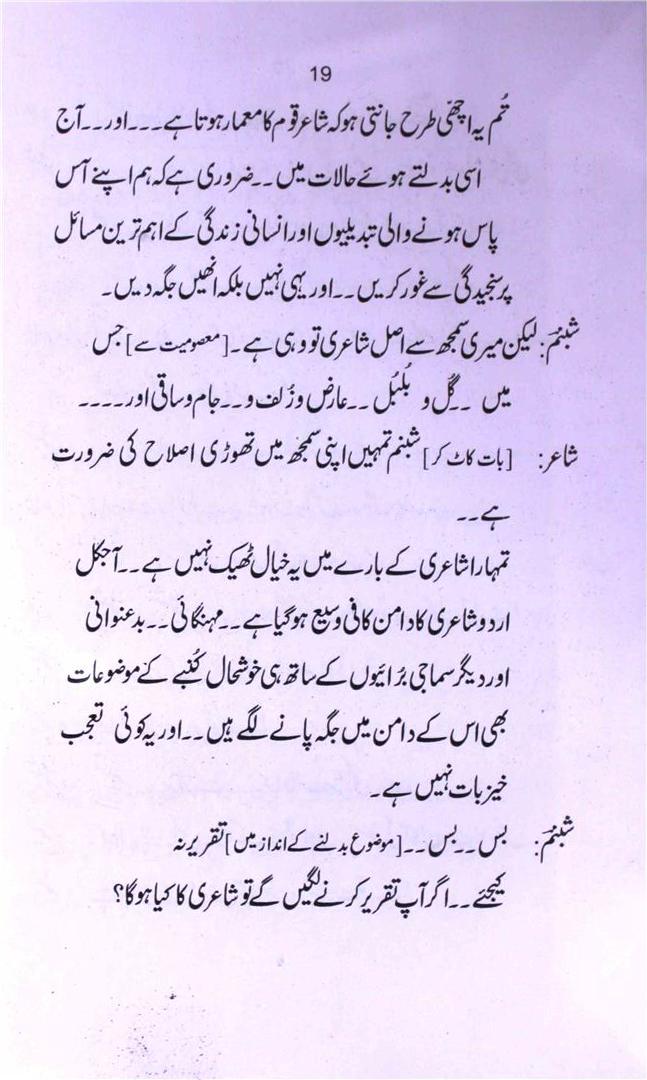 19
تُم یہ اچھّی طرح جانتی ہو کہ شاعر قوم کا معمار ہوتا ہے۔۔۔ اور۔۔ آج
اسی بدلتے ہوئے حالات میں۔۔ ضروری ہے کہ ہم اپنے آس
پاس ہونے والی تبدیلیوں اور انسانی زندگی کے اہم ترین مسائل
پر سنجیدگی سے غور کریں۔۔ اور یہی نہیں بلکہ انھیں جگہ دیں۔
شبنم: لیکن میری سمجھ سے اصل شاعری تو وہی ہے۔ [معصومیت سے] جس
میں ۔۔ گُل و بُلبُل ۔۔ عارض و زُلف و۔۔ جام و ساقی اور۔۔۔۔
شاعر: [بات کاٹ کر] شبنم تمہیں اپنی سمجھ میں تھوڑی اصلاح کی ضرورت
ہے۔۔
تمہارا شاعری کے بارے میں یہ خیال ٹھیک نہیں ہے۔۔ آجکل
اردو شاعری کا دامن کافی وسیع ہو گیا ہے۔۔ مہنگائی۔۔ بدعنوانی
اور دیگر سماجی برُائیوں کے ساتھ ہی خوشحال کُنبے کے موضوعات
بھی اس کے دامن میں جگہ پانے لگے ہیں۔۔ اور یہ کوئی تعجب
خیز بات نہیں ہے۔
شبنم: بس۔۔ بس۔۔ [موضوع بدلنے کے انداز میں] تقریر نہ
کیجئے۔۔ اگر آپ تقریر کرنے لگیں گے تو شاعری کا کیا ہوگا؟